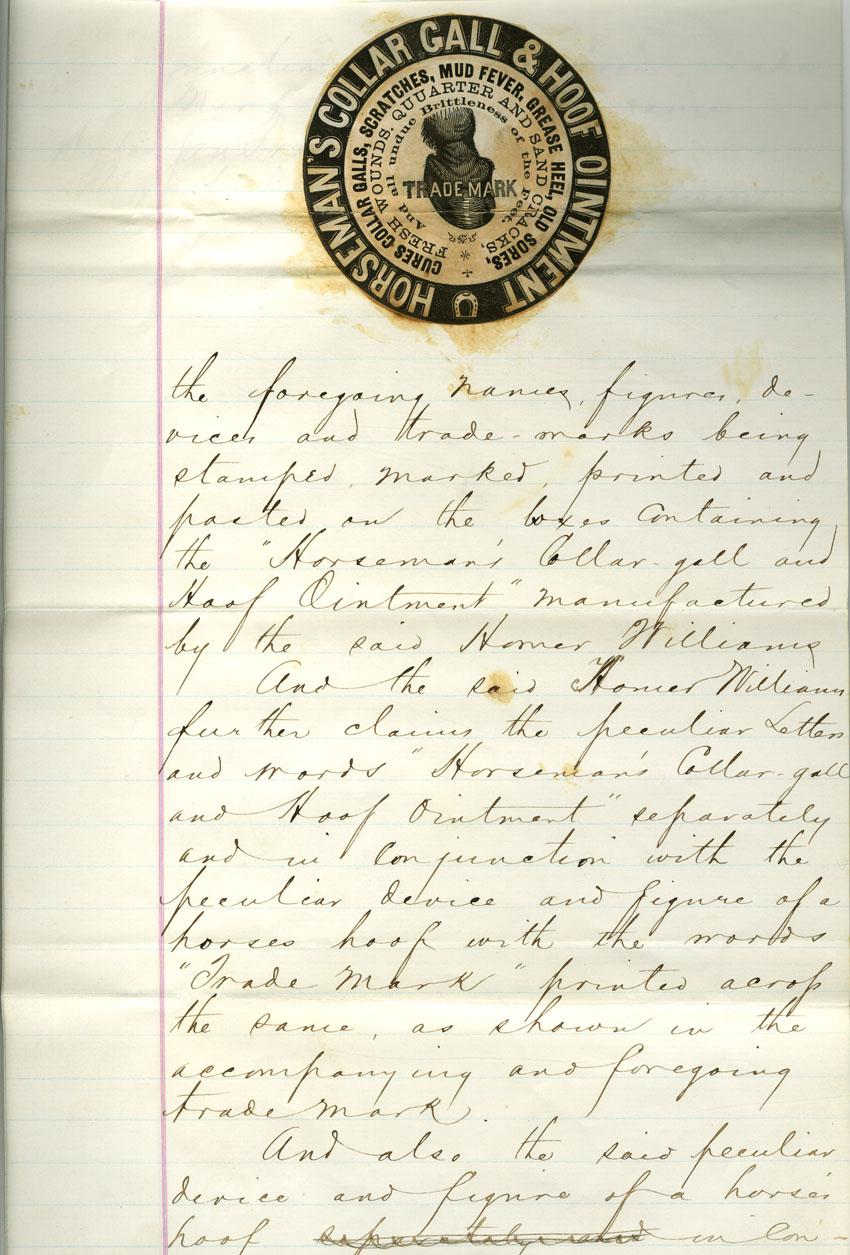 HORSEMAN'S COLLAR GALL & HOOF OINTMENT
CURES COLLAR GALLS, SCRATCHES, MUD FEVER, GREASE HEEL, OLD SORES,
FRESH WOUNDS, QUUARTER AND SAND CRACKS,
And all undue Brittleness of the Feet.
TRADE MARK
the foregoing names, figures, de-
vices and trade-marks being
stamped, marked, printed and
pasted on the boxes containing
the "Horseman's Collar-gall and
Hoof Ointment" manufactured
by the said Homer Williams
And the said Homer Williams
further claims the peculiar Letters
and words "Horseman's Collar-gall
and Hoof Ointment" separately
and in conjunction with the
peculiar device and figure of a
horses hoof with the words
"Trade Mark" printed across
the same, as shown in the
accompanying and foregoing
trade mark.
And also the said peculiar
device and figure of a horse's
hoof separately and in con-